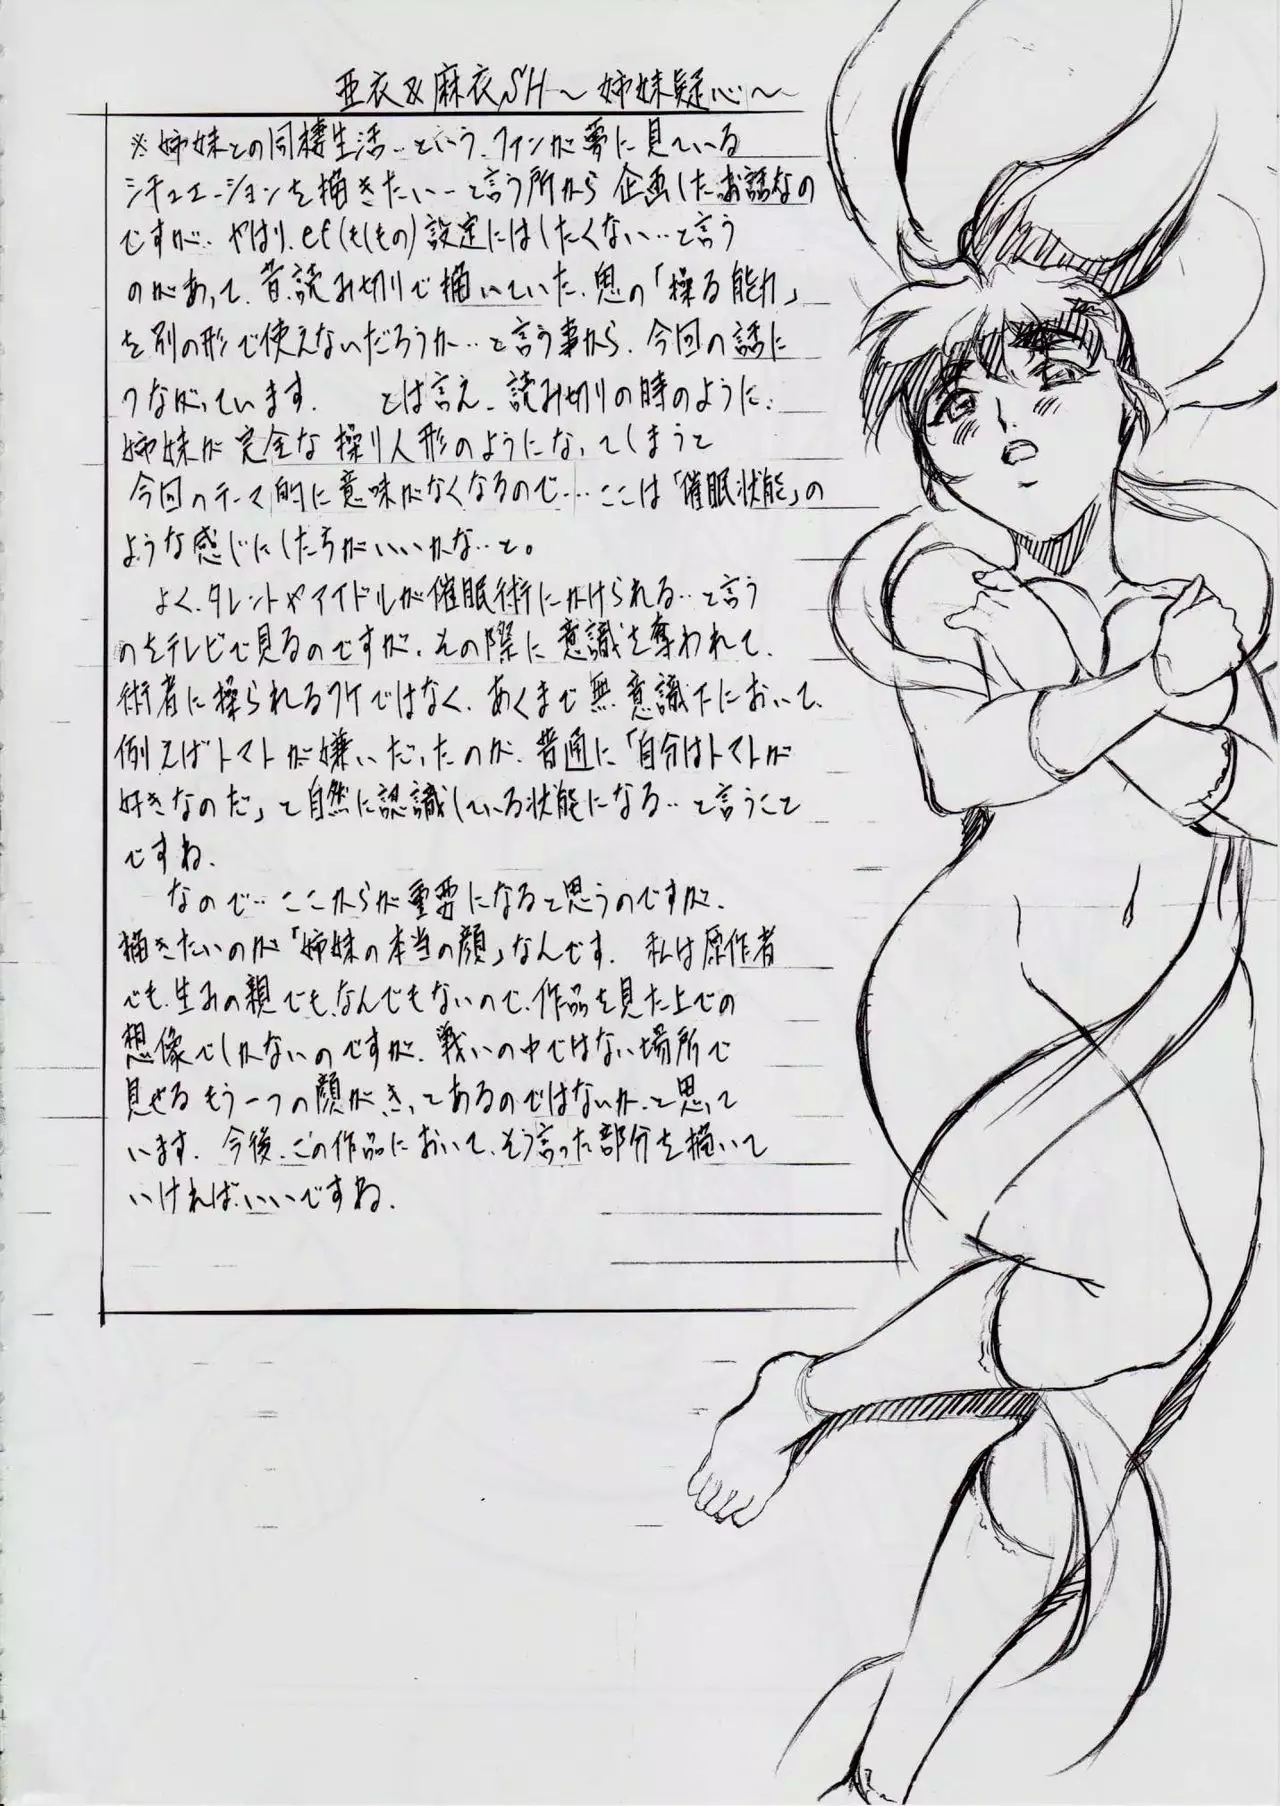 亜衣&麻衣SH～姉妹疑心～
※姉妹との同棲生活‥という、ファンが夢に見ている
シチュエーションを描きたい―と言う所から企画したお話なの
ですが‥やはり、ef(もしもの)設定にはしたくない‥と言う
のがあって、昔、読み切りで描いていた、鬼の「操る能力」
を別の形で使えないだろうか‥と言う事から、今回の話に
つながっています。　とは言え、読み切りの時のように、
姉妹が完全な操り人形のようになってしまうと
今回のテーマ的に意味がなくなるので‥‥ここは「催眠状態」の
ような感じにしたらがいいかな‥と。
よく、タレントやアイドルが催眠術にかけられる‥と言う
のをテレビで見るのですが、その際に意識を奪われて、
術者に操られるワケではなく、あくまで無意識下において、
例えばトマトが嫌いだったのが、普通に「自分はトマトが
好きなのだ」と自然に認識している状態になる‥と言うこと
ですね、
なので‥ここからが重要になると思うのですが、
描きたいのが「姉妹の本当の顔」なんです。私は原作者
でも、生みの親でも、なんでもないので、作品を見た上での
想像でしかないのですが、戦いの中ではない場所で
見せるもう一つの顔がきっとあるのではないか、と思って
います。今後、この作品において、そう言った部分を描いて
いければ、いいですね。